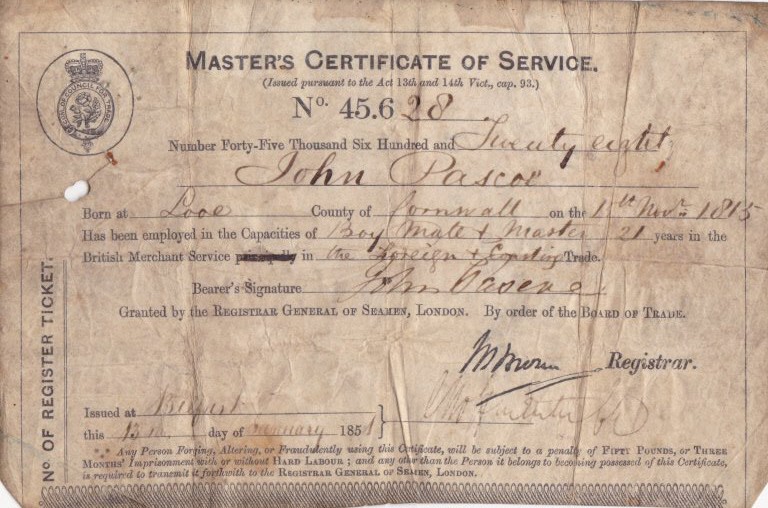 MASTER'S CERTIFICATE OF SERVICE.
(Issued pursuant to the Act 13th and 14th Vict., cap. 93.)
No. 45.6 28
Number Forty-Five Thousand Six Hundred and Twenty eight
John Pascoe
Born at Looe County of Cornwall on the Novr. 1815
Has been employed in the Capacities of Boy Mate & Master 21 years in the
British Merchant Service in the Foreign & Coasting Trade.
Bearer's Signature John
Granted by the REGISTRAR GENERAL OF SEAMEN, LONDON. By order of the BOARD OF TRADE.
Registrar.
Issued at
this 13th day of January 185
Any Person Forging, Altering, or Fraudulently using this Certificate, will be subject to a penalty of FIFTY POUNDS, or THREE
MONTHS' Imprisonment with or without HARD LABOUR; and any other than the Person it belongs to becoming possessed of this Certificate,
is required to transmit it forthwith to the REGISTRAR GENERAL OF SEAMEN, LONDON.
No. OF REGISTER TICKET.